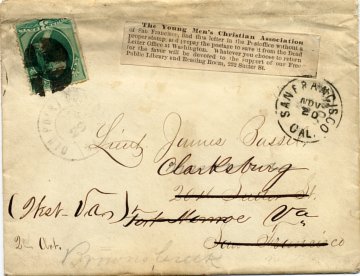 The Young Men's Christian Association
of San Francisco, find this letter in the Postoffice without a
proper stamp, and prepay the postage to save it from the Dead
Letter Office at Washington. Whatever you choose to return
for the favor will be devoted to the support of our Free
Public Library and Reading Room, 232 Sutter St.
SAN FRANCISCO
NOV
20
CAL.
Lieut James
Clarksburg
St
(West-Va) Fort Monroe Va
San Francisco